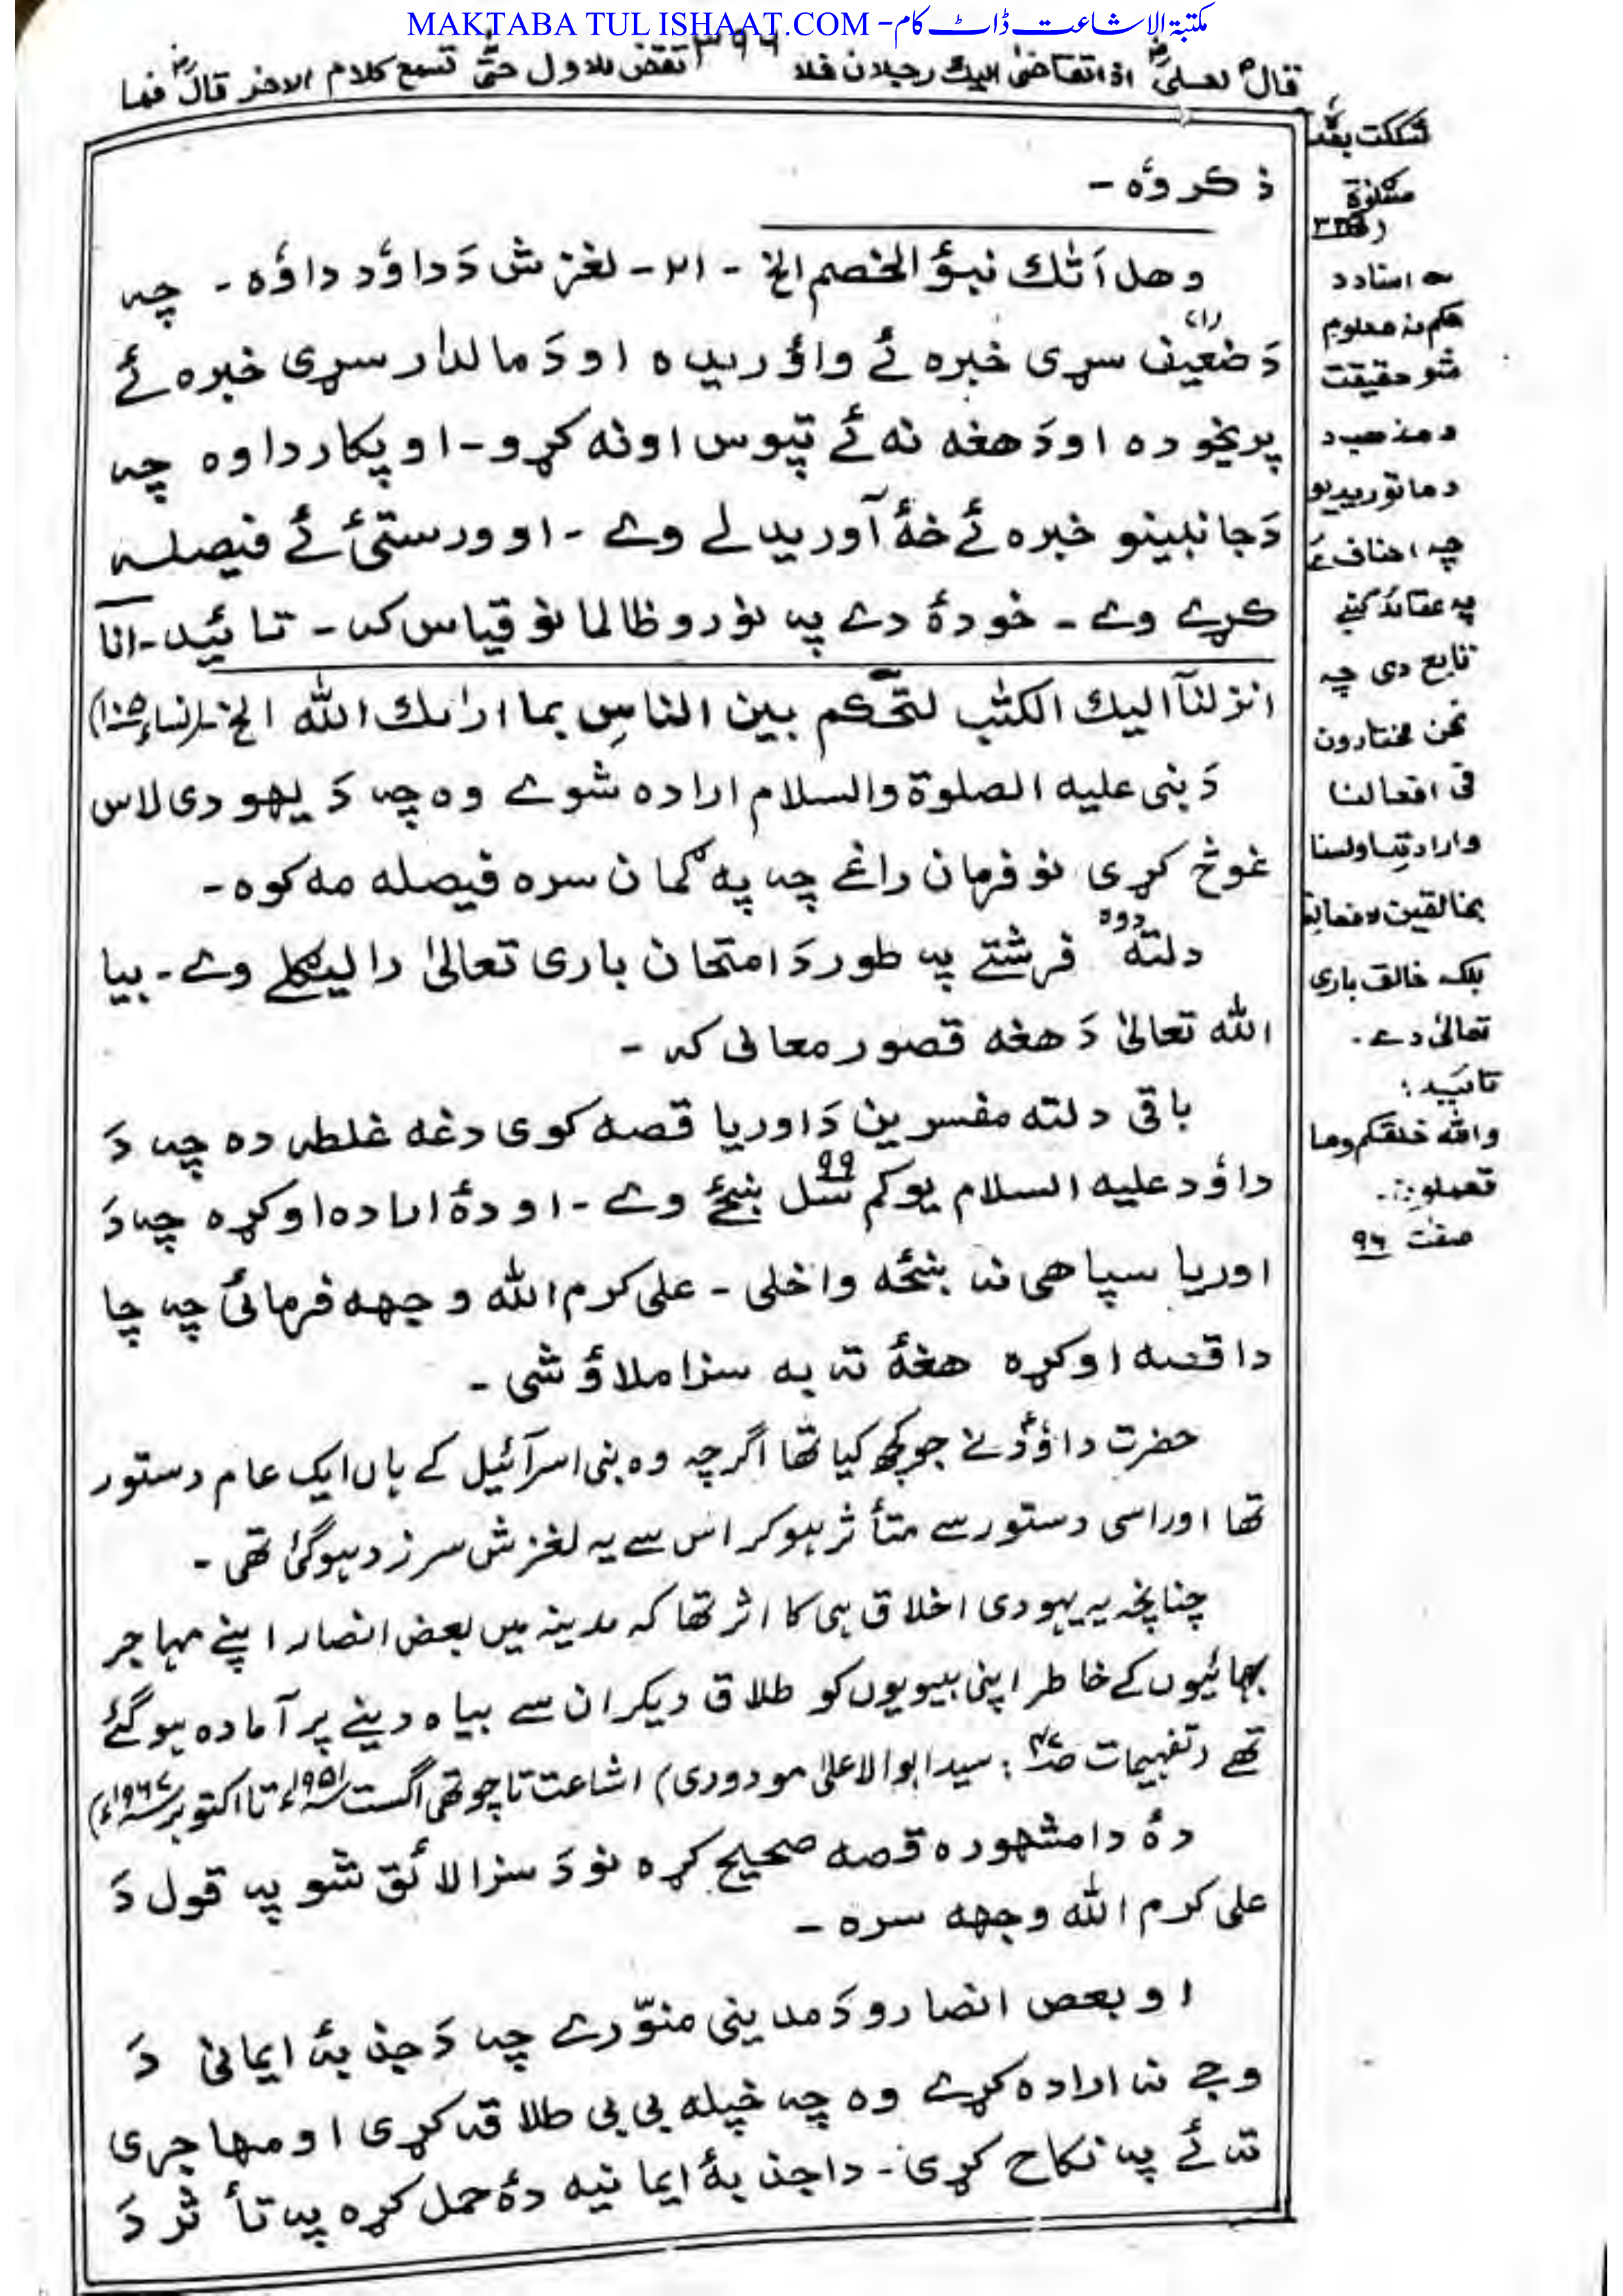 MAKTABA TUL ISHAAT.COM - مکتبۃ الاشاعت ڈاٹ کام
٣٩٦
قالؐ لعلیؓ اذا تقاضیٰ الیك رجلان فلا تقض للاول حتّٰی تسمع کلام الاخر قالؓ فما
شککت بعد
مشکوٰة
ذکر وٴہ -
وهل اَتٰك نبؤ الخصم الخ - ٢١ - لغزش دَ داؤد داؤہ - چہ
(١)
دَ ضعیف سړی خبرہ ئے واؤریدہ او دَ مالدار سړی خبرہ ئے
پریخودہ او دَ هغہ نہ ئے تپوس اونہ کړو - او پکار دا وہ چہ
دَ جانبینو خبرہ ئے خهٔ آوریدلے وے - او ورستیٔ ئے فیصلہ
کړے وے - خو دهٔ دے پہ نورو ظالمانو قیاس کہ - تائید - انا
انزلنآ الیك الکتٰب لتحکم بین الناسِ بما ارٰىك اللّٰه الخ (النساء ١٠٥)
دَ نبی علیہ الصلوٰة والسلام ارادہ شوے وہ چہ دَ یهودی لاس
غوڅ کړی نو فرمان راغے چہ پہ گمان سرہ فیصلہ مہ کوہ -
دلتہ دوہ فرشتے پہ طور دَ امتحان باری تعالیٰ رالیګلے وے - بیا
اللّٰه تعالیٰ دَ هغہ قصور معافی کہ -
باقی دلتہ مفسرین دَ اوریا قصہ کوی دغہ غلطہ دہ چہ دَ
داؤد علیہ السلام یو کم سل ٩٩ ښځے وے - او دهٔ ارادہ اوکړہ چہ دَ
اوریا سپاهی نہ ښځہ واخلی - علی کرم اللّٰه وجهہ فرمائی چہ چا
دا قصہ اوکړہ هغهٔ تہ بہ سزا ملاؤ شی -
حضرت داؤدؑ نے جو کچھ کیا تھا اگرچہ وہ بنی اسرآئیل کے ہاں ایک عام دستور
تھا اور اسی دستور سے متأثر ہو کر اس سے یہ لغزش سرزد ہوگئ تھی -
چنانچہ یہ یہودی اخلاق ہی کا اثر تھا کہ مدینہ میں بعض انصار اپنے مہاجر
بھائیوں کے خاطر اپنی بیویوں کو طلاق دیکر ان سے بیاہ دینے پر آمادہ ہوگئے
تھے (تفہیمات : سید ابو الاعلیٰ مودودی) اشاعت تا چوتھی اگست ١٩٥١ء تا اکتوبر ١٩٦٧ء)
دهٔ دا مشهورہ قصہ صحیح کړہ نو دَ سزا لائق شو پہ قول دَ
علی کرم اللّٰه وجهہ سرہ -
او بعض انصارو دَ مدینی منوّرے چہ دَ جذبهٔ ایمانی دَ
وجے نہ ارادہ کړے وہ چہ خپلہ بی بی طلاقہ کړی او مهاجری
تہ ئے پہ نکاح کړی - دا جذبهٔ ایمانیہ دهٔ حمل کړہ پہ تأثر دَ
حکم نہ معلوم
شو حقیقت
د مذهب د
د ماتوریدیو
چہ احناف
پہ عقائد کښے
تابع دی چہ
نحن مختارون
فی افعالنا
وارادتنا ولسنا
بخالقین لافعالنا
بلکہ خالق باری
تعالیٰ دے -
تائید :
واللّٰه خلقکم وما
تعملون -
صفٰت ٩٦